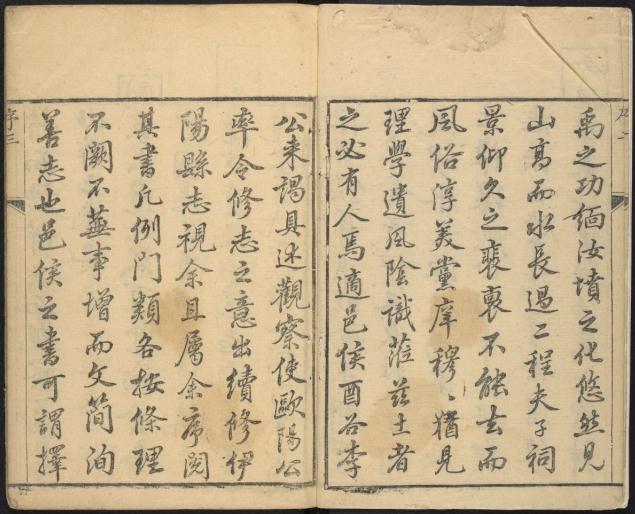 禹之功緬汝墳之化悠然見
山高而水長過二程夫子祠
景仰久之裵裏不能去而
風俗淳美黨庠穆〻猶見
理學遺風陰識蒞兹土者
之必有人焉適邑侯酉谷李
公来謁具述觀察使歐陽公
率令修志之意出續修伊
陽縣志視余且屬余序閱
其書凡例門類各按條理
不闕不蕪事增而文簡洵
善志也邑侯之書可謂擇
序三